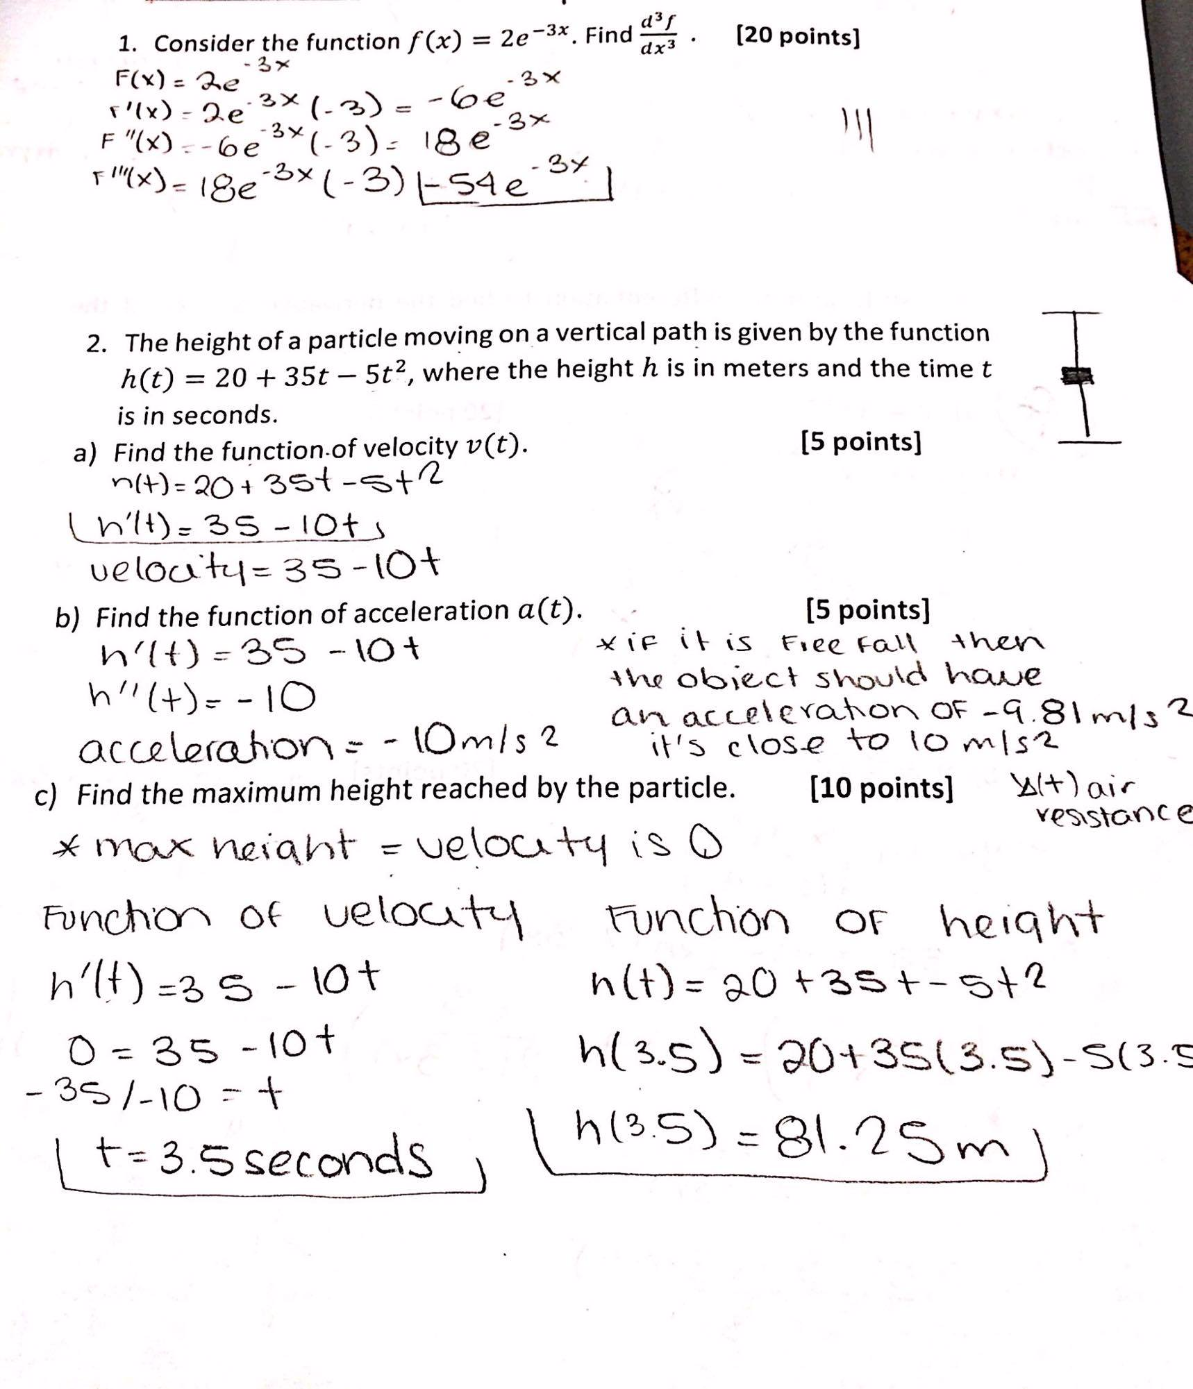 1. Consider the function f(x) = 2e⁻³ˣ. Find d³f/dx³ . [20 points]
F(x) = 2e⁻³ˣ
F'(x) = 2e⁻³ˣ(-3) = -6e⁻³ˣ
F''(x) = -6e⁻³ˣ(-3) = 18e⁻³ˣ
F'''(x) = 18e⁻³ˣ(-3) -54e⁻³ˣ
2. The height of a particle moving on a vertical path is given by the function
h(t) = 20 + 35t − 5t², where the height h is in meters and the time t
is in seconds.
a) Find the function of velocity v(t). [5 points]
h(t) = 20 + 35t - 5t²
h'(t) = 35 - 10t
velocity = 35 - 10t
b) Find the function of acceleration a(t). [5 points]
h'(t) = 35 - 10t
h''(t) = -10
acceleration = -10m/s2
* if it is Free Fall then
the object should have
an acceleration OF -9.81m/s2
it's close to 10 m/s2
(t) air
resistance
c) Find the maximum height reached by the particle. [10 points]
* max height = velocity is 0
Function of velocity
h'(t) = 35 - 10t
0 = 35 - 10t
-35/-10 = t
t = 3.5 seconds
Function OF height
h(t) = 20 + 35t - 5t2
h(3.5) = 20+35(3.5)-5(3.5
h(3.5) = 81.25m